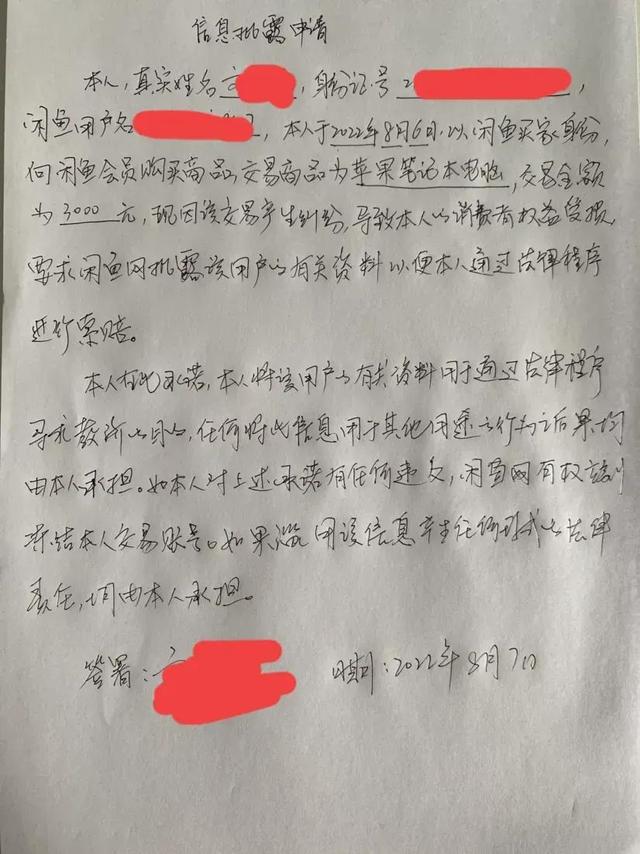 信息批露申请
本人,真实姓名,身份证号 2,
闲鱼用户名,本人于2022年8月6日,以闲鱼买家身份,
向闲鱼会员购买商品,交易商品为苹果笔记本电脑,交易金额
为3000元,现因该交易产生纠纷,导致本人的消费者权益受损,
要求闲鱼网批露该用户的有关资料以便本人通过法律程序
进行索赔。
本人在此承诺,本人将该用户的有关资料用于通过法律程序
寻求救济的目的,任何将此信息用于其他用途之行为之后果均
由本人承担。如本人对上述承诺有任何违反,闲鱼网有权立刻
冻结本人交易账号。如果滥用该信息产生任何形式的法律
责任,均由本人承担。
签署: 日期:2022年8月7日